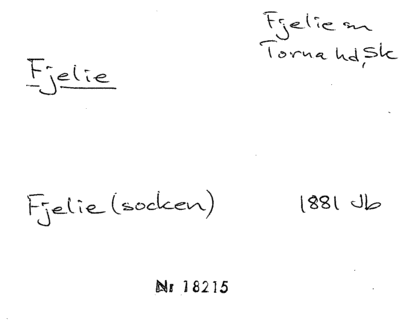 Fjelie sn
Torna hd, Sk
Fjelie
Fjelie (socken) 1881 Jb
Nr 18215